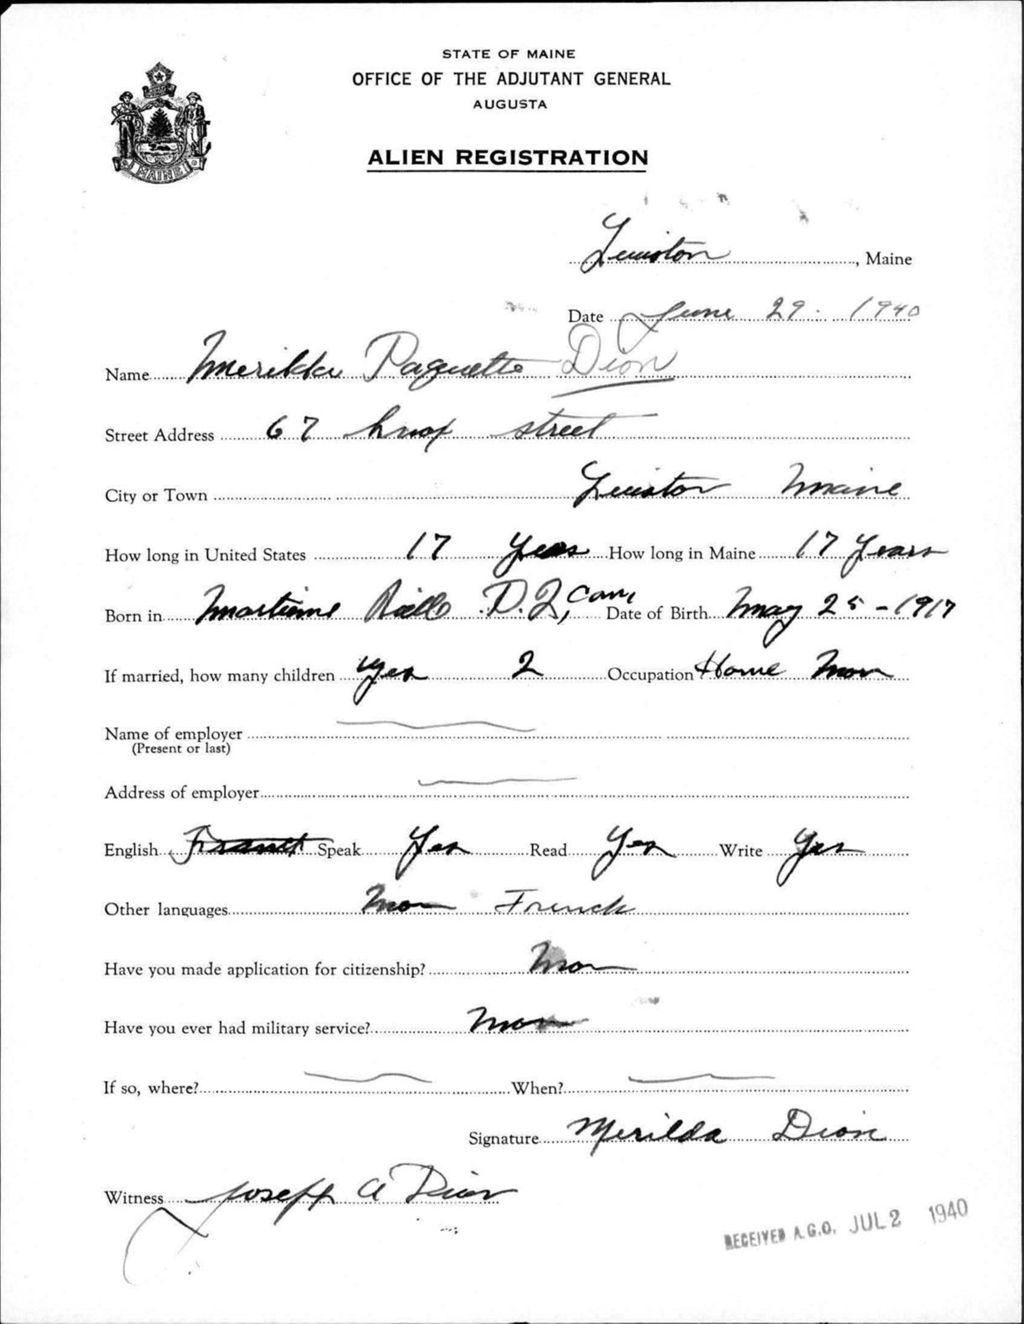 STATE OF MAINE
OFFICE OF THE ADJUTANT GENERAL
AUGUSTA
MAINE
ALIEN REGISTRATION
Lewiston, Maine
Date June 29. 1940
Name Merilda Paquette Dion
Street Address 67 Knox street
City or Town Lewiston Maine
How long in United States 17 Years How long in Maine 17 Years
Born in P.Q, Can, Date of Birth May 25 - 1917
If married, how many children Yes 2 Occupation Home
Name of employer
(Present or last)
Address of employer
English Speak Yes Read Yes Write Yes
Other languages French
Have you made application for citizenship?
Have you ever had military service?
If so, where? When?
Signature Merilda Dion
Witness Joseph A Dion
RECEIVED A.G.O. JUL 2 1940